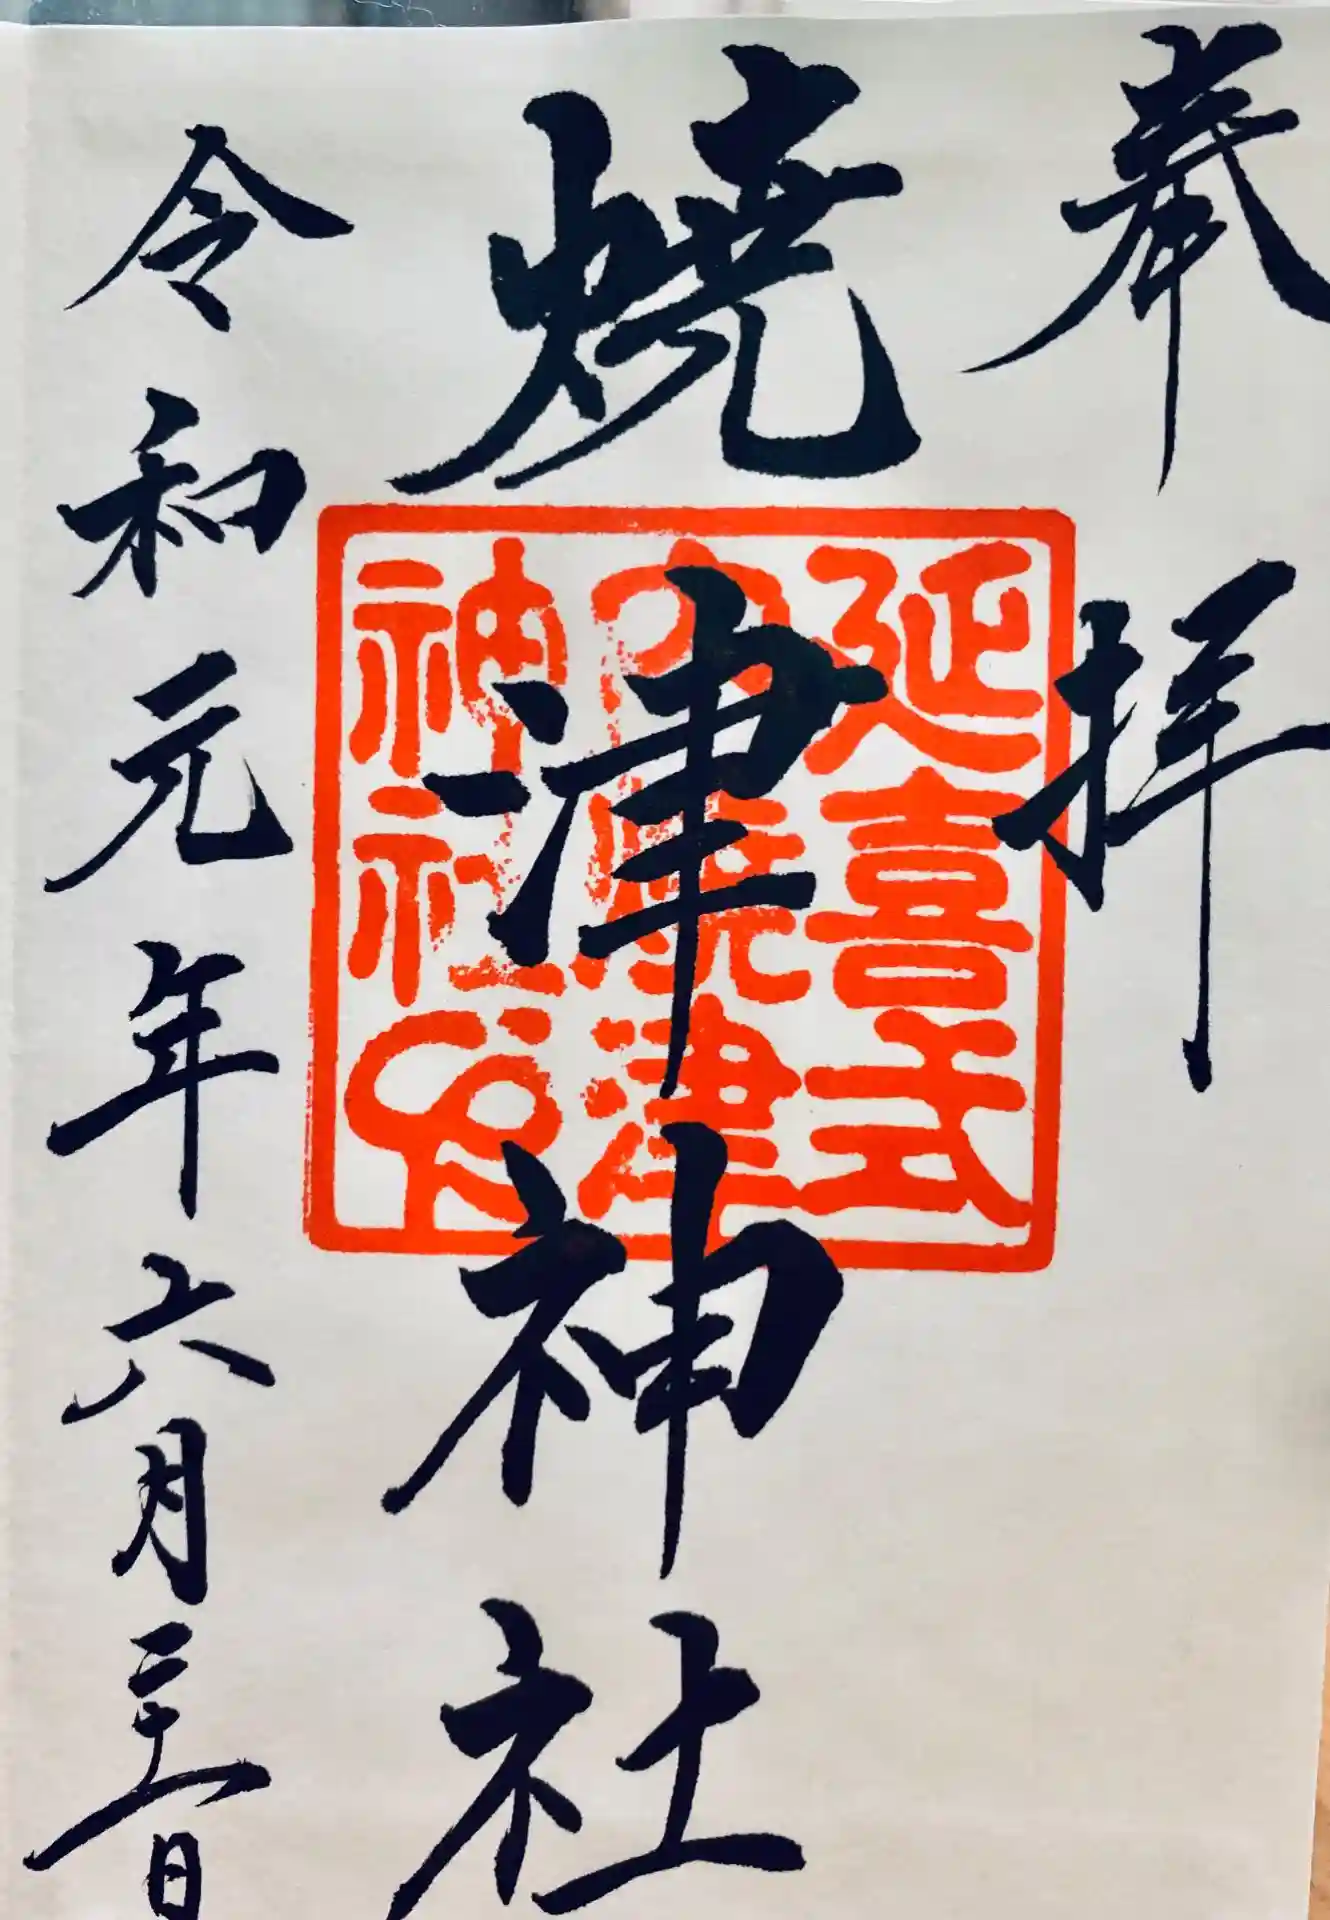 奉拝
焼津神社
延喜式
内焼津
神社印
令和元年六月日